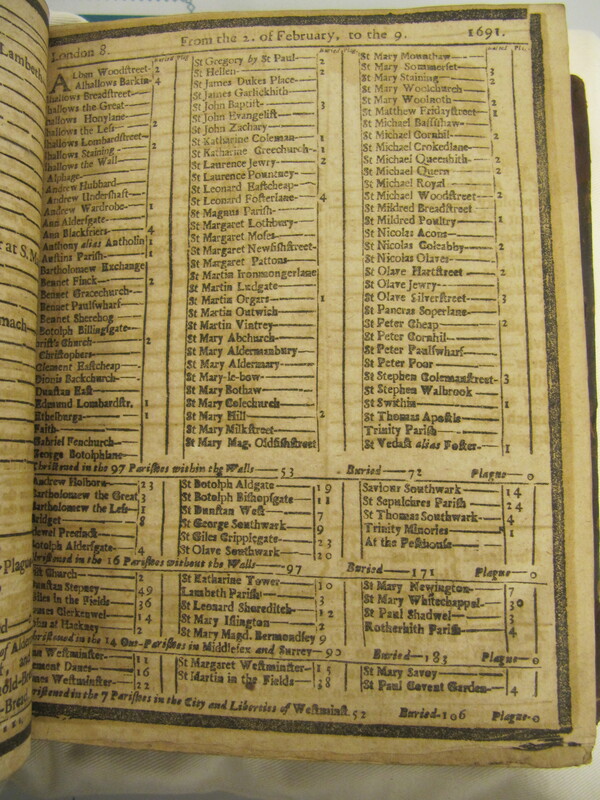 London 8. From the 2. of February, to the 9. 1691.
Buried Plag.
ALban Woodstreet 2
Alhallows Barkin 4
lhallows Breadstreet
lhallows the Great
lhallows Honylane
lhallows the Less 2
lhallows Lombardstreet
lhallows Staining 2
lhallows the Wall
Alphage
Andrew Hubbard
Andrew Undershaft
Andrew Wardrobe 1
Ann Aldersgate
Ann Blackfriers 4
Anthony alias Antholin 1
Austins Parish 1
Bartholomew Exchange
Bennet Finck 2
Bennet Gracechurch
Bennet Paulswharf
Bennet Sherehog
Botolph Billingsgate
rist's Church 2
Christophers
Clement Eastcheap
Dionis Backchurch
Dunstan East
Edmund Lombardstr. 1
Ethelburga 1
Faith
Gabriel Fenchurch
George Botolphlane
St Gregory by St Paul 2
St Hellen 2
St James Dukes Place
St James Garlickhith
St John Baptist 3
St John Evangelist
St John Zachary
St Katharine Coleman 1
St Katharine Creechurch 1
St Laurence Jewry 2
St Laurence Pountney
St Leonard Eastcheap
St Leonard Fosterlane 4
St Magnus Parish
St Margaret Lothbury
St Margaret Moses
St Margaret Newfishstreet
St Margaret Pattons
St Martin Ironmongerlane
St Martin Ludgate
St Martin Orgars 1
St Martin Outwich
St Martin Vintrey
St Mary Abchurch
St Mary Aldermanbury
St Mary Aldermary
St Mary-le-bow
St Mary Bothaw
St Mary Colechurch
St Mary Hill 2
St Mary Milkstreet
St Mary Mag. Oldfishstreet
St Mary Mounthaw
St Mary Sommerset 3
St Mary Staining 2
St Mary Woolchurch
St Mary Woolnoth 2
St Matthew Fridaystreet 1
St Michael Bassishaw
St Michael Cornhil 2
St Michael Crokedlane
St Michael Queenhith 2
St Michael Quern 2
St Michael Royal
St Michael Woodstreet 2
St Mildred Breadstreet
St Mildred Poultry 1
St Nicolas Acons
St Nicolas Coleabby 2
St Nicolas Olaves
St Olave Hartstreet 2
St Olave Jewry
St Olave Silverstreet 3
St Pancras Soperlane
St Peter Cheap 2
St Peter Cornhil
St Peter Paulswharf
St Peter Poor
St Stephen Colemanstreet 3
St Stephen Walbrook
St Swithin 1
St Thomas Apostle
Trinity Parish
St Vedast alias Foster 1
Christened in the 97 Parishes within the Walls 53 Buried 72 Plague 0
Andrew Holborn 23
Bartholomew the Great 3
Bartholomew the Less 1
Bridget 8
dewel Precinct
Botolph Aldersgate 4
St Botolph Aldgate 19
St Botolph Bishopsgate 18
St Dunstan West 7
St George Southwark 9
St Giles Cripplegate 23
St Olave Southwark 20
Saviour Southwark 14
St Sepulchres Parish 24
St Thomas Southwark 4
Trinity Minories 1
At the Pesthouse
hristened in the 16 Parishes without the Walls 97 Buried 171 Plague 0
ist Church 2
unstan Stepney 49
iles in the Fields 36
ames Clerkenwel 14
ohn at Hackney 2
St Katharine Tower 10
Lambeth Parish
St Leonard Shoreditch 12
St Mary Islington 2
St Mary Magd. Bermondsey 9
St Mary Newington 7
St Mary Whitechappel 30
St Paul Shadwel 3
Rotherhith Parish 4
hristened in the 14 Out-Parishes in Middlesex and Surrey 90 Buried 183 Plague 0
an Westminster 11
ement Danes 16
ames Westminster 22
St Margaret Westminster 15
St Martin in the Fields 38
St Mary Savoy
St Paul Covent Garden 4
hristened in the 7 Parishes in the City and Liberties of Westminst. 52 Buried 106 Plague 0